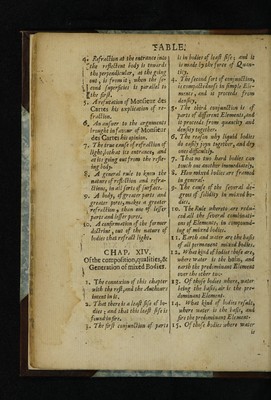 TABLE.
4. Refraction at the entrance into
the reflectent body is towards
the perpendicular, at the going
out, is from it; when the se-
cond superficies is parallel to
the first.
5. A refutation of Monsieur des
Cartes his explication of re-
fraction.
6. An answer to the arguments
brought in favour of Monsieur
des Cartes his opinion.
7. The true cause of refraction of
light, both at its entrance, and
at its going out from the reflec-
ting body.
8. A generall rule to know the
nature of reflection and refra-
ctions, in all sorts of surfaces.
9. A body, of greater parts and
greater pores, makes a greater
refraction, then one of lesser
parts and lesser pores.
10. A confirmation of the former
doctrine, out of the nature of
bodies that refract light.
CHAP. XIV.
Of the composition, qualities, &
Generation of mixed Bodies.
1. The connexion of this chapter
with the rest, and the Authours
intent in it.
2. That there is a least sise of bo-
dies; and that this least sise is
found in fire.
3. The first conjunction of parts
is in bodies of least sise; and it
is made by the force of Quan-
tity.
4. The second sort of conjunction,
is compactedness in simple Ele-
ments; and it proceeds from
density.
5. The third conjunction is of
parts of different Elements, and
it proceeds from quantity and
density together.
6. The reason why liquid bodies
do easily joyn together, and dry
ones difficultly.
7. That no two hard bodies can
touch one another immediately.
8. How mixed bodies are framed
in generall.
9. The cause of the several de-
grees of solidity in mixed bo-
dies.
10. The Rule whereto are redu-
ced all the several combinati-
ons of Elements, in compound-
ing of mixed bodies.
11. Earth and water are the basis
of all permanent mixed bodies.
12. What kind of bodies those are,
where water is the basis, and
earth the predominant Element
over the other two.
13. Of those bodies, where, water
being the basis, air is the pre-
dominant Element.
14. What kind of bodies result,
where water is the basis, and
fire the predominant Element.
15. Of those bodies where water
is